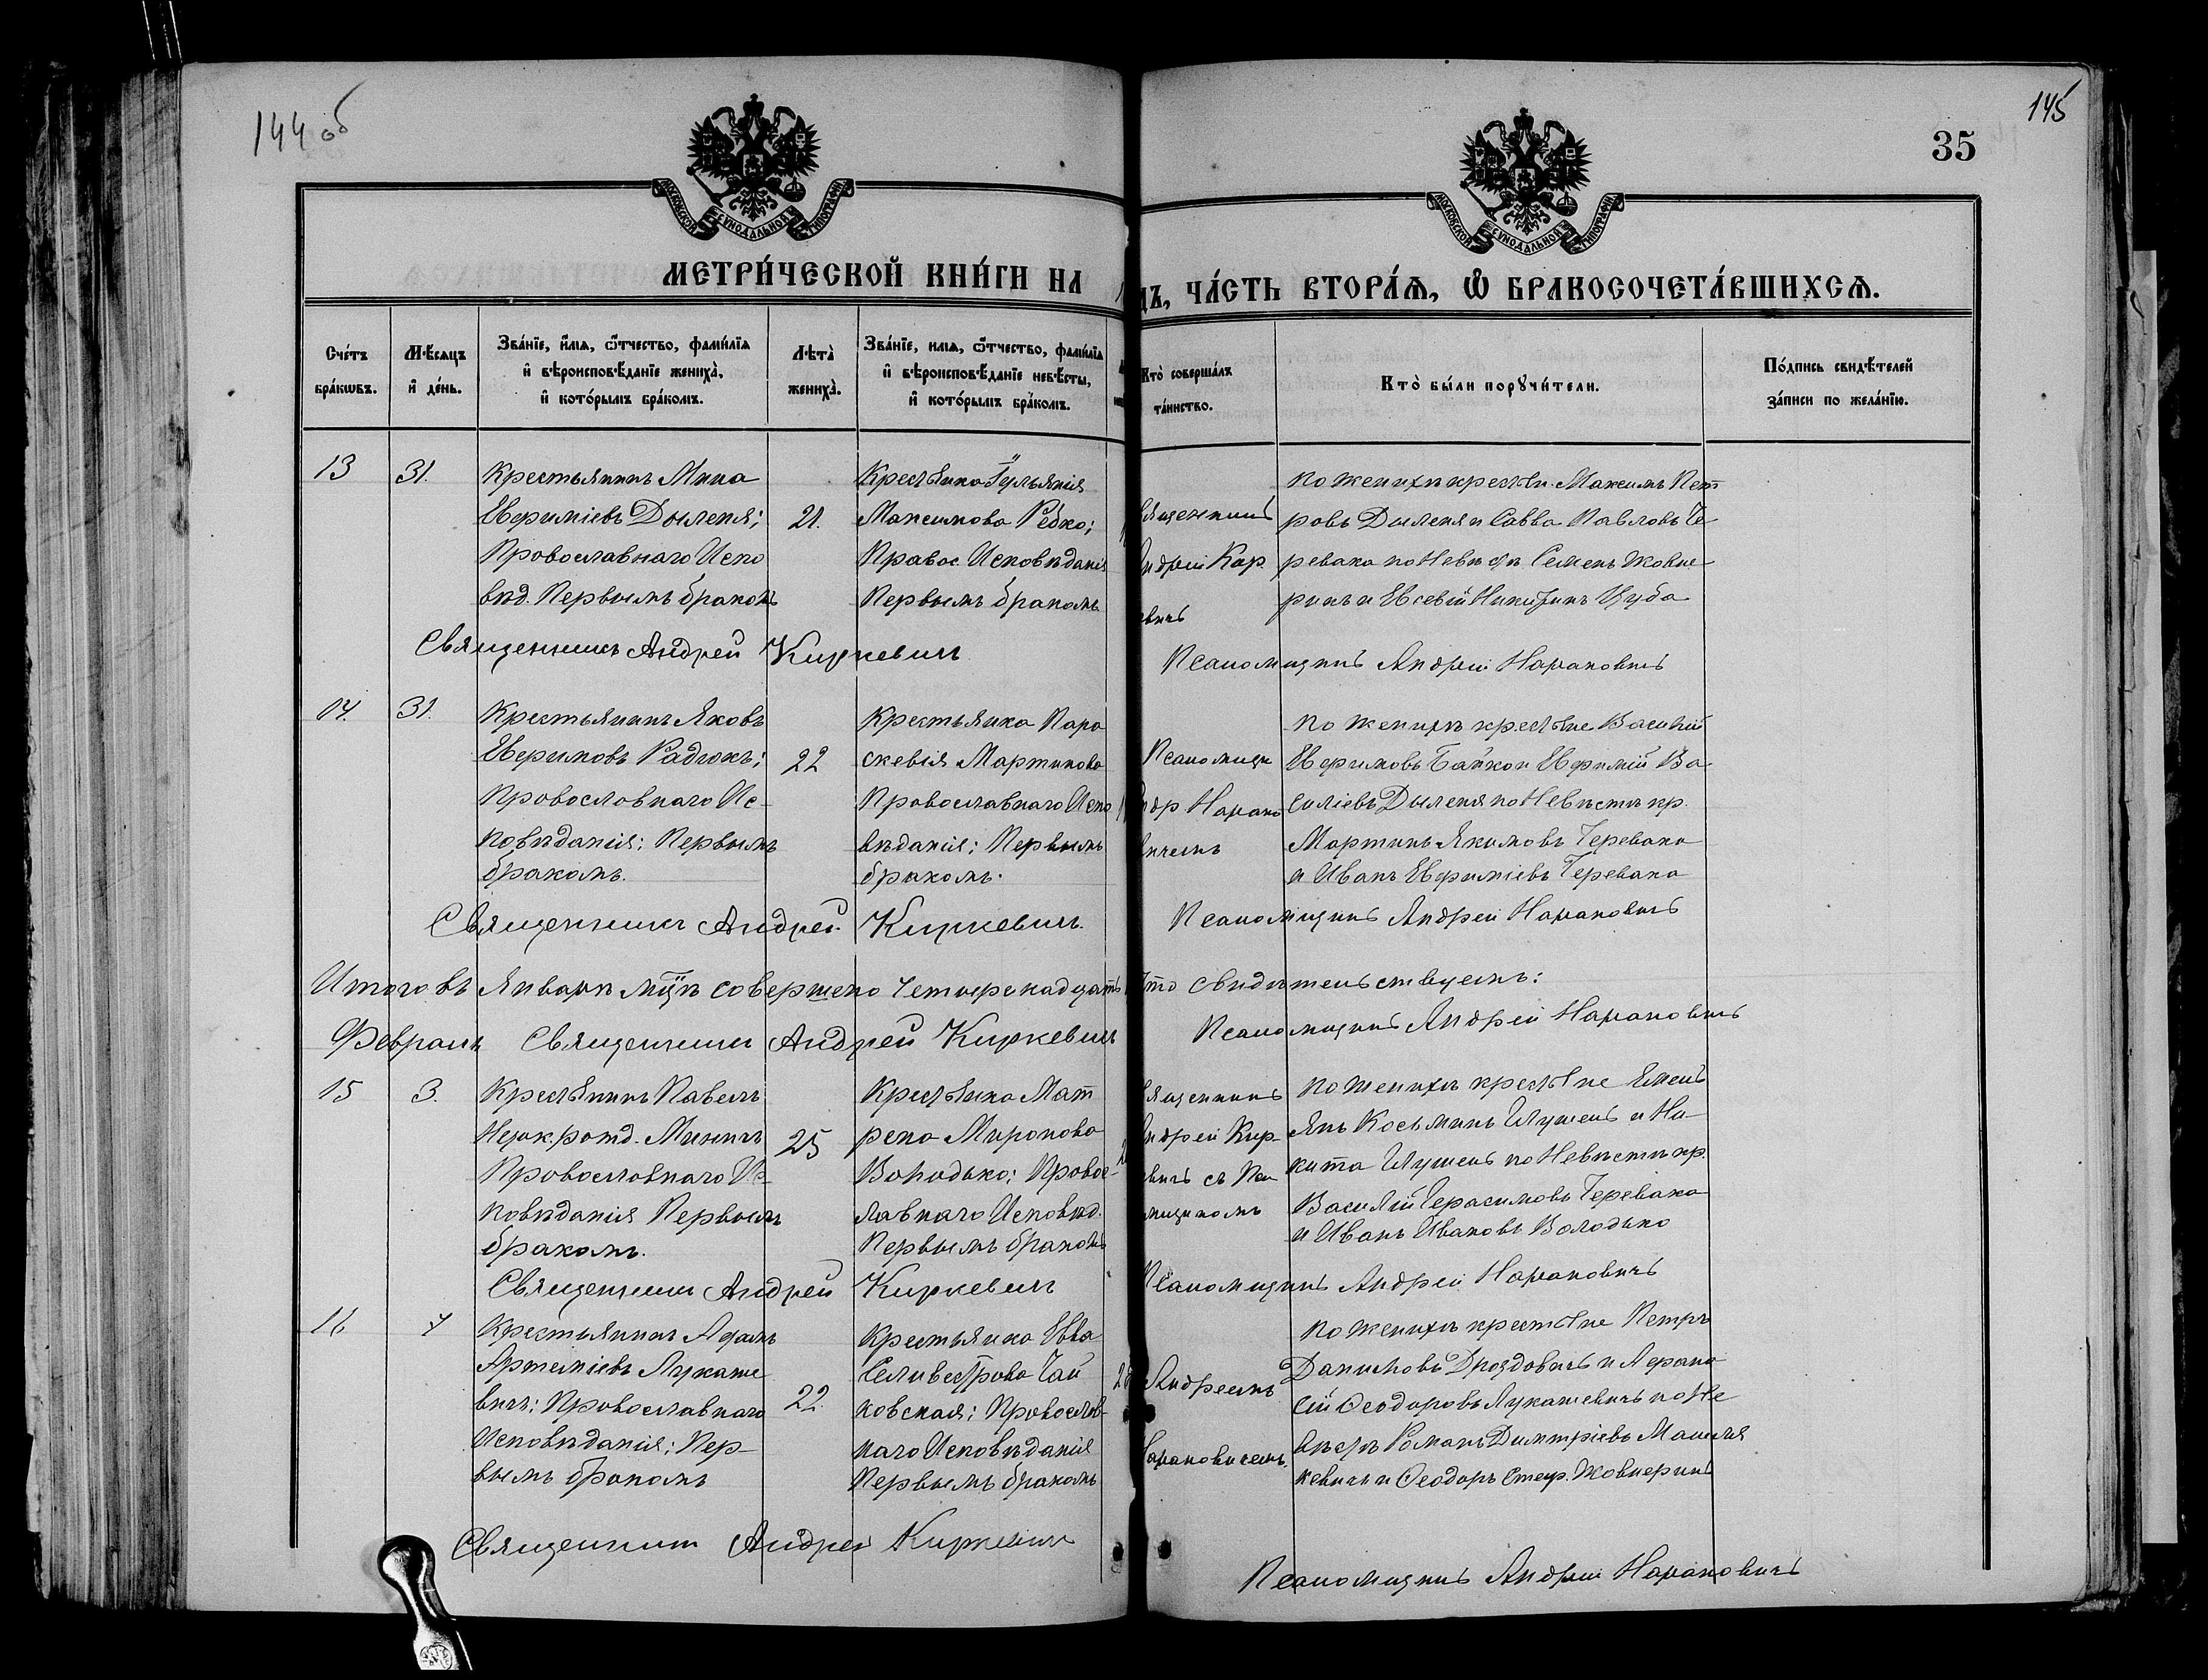 144 об
145
35
МОСКОВСКОЙ СѴНОДАЛЬНОЙ ТИПОГРАФІИ
МОСКОВСКОЙ СѴНОДАЛЬНОЙ ТИПОГРАФІИ
МЕТРИ́ЧЕСКОЙ КНИ́ГИ НА
ДЪ, ЧА́СТЬ ВТОРА́Ѧ, Ѽ БРАКОСОЧЕТА́ВШИХСѦ.
Сче́тъ бра́кѡвъ.
Мѣ́сяцъ и҆ де́нь.
Зва́нїе, и҆́мѧ, ѻ҆́тчество, фами́лїѧ и҆ вѣроисповѣ́данїе жениха̀, и҆ кото́рымъ бра́комъ.
Лѣта̀ жениха̀.
Зва́нїе, имѧ, ѻ҆́тчество, фами́лїѧ и҆ вѣроисповѣ́данїе невѣ́сты, и҆ кото́рымъ бра́комъ.
Кто̀ соверша́лъ та́инство.
Кто̀ бы́ли порꙋчи́тели.
По́дпись свидѣ́телей за́писи по жела́нїю.
13
31.
Крестьянинъ Мина
Евфиміевъ Дыленя;
Провославнаго Испо
вѣд. Первымъ бракомъ
21.
Максимова Редко;
Правос. Исповѣданія
Первымъ бракомъ
вященникъ
ндрей Кир
евичъ
по женихѣ крестьян. Максимъ Пет
ровъ Дыленя и Савва Павловъ Че-
ревако по Невѣстѣ Семенъ Жовне-
ринъ и Евсевій Никитинъ Цуба
Священникъ Андрей Киркевичъ
Псаломщикъ Андрей Наранович
14.
31.
Крестьянинъ Яковъ
Евфимовъ Радюкъ;
Провословнаго Ис-
повѣданія; Первымъ
бракомъ.
22
Крестьянка Пара
скевія Мартинова
Провославнаго Испо
вѣданія; Первымъ
бракомъ.
Псаломщи
вичемъ
по женихѣ крестьяне Василій
Евфимовъ Банкои Евфимій Ва-
силіевъ Дыленя по Невѣстѣ кр.
Мартинъ Якимовъ Черевако
и Иванъ Евфиміевъ Черевако
Священникъ Андрей Киркевичъ.
Псаломщикъ Андрей Наранович
Итого въ Январѣ мцѣ совершено четырнадцать
что свидѣтельствуемъ:
Февраль Священникъ Андрей Киркевичъ
Псаломщикъ Андрей Наранович
15
3.
Крестьянинъ Павелъ
Провословнаго Ис-
повѣданія Первымъ
бракомъ.
25
Крестьянка Мат
рена Миронова
Володько; Правос-
лавнаго Исповѣд.
Первымъ бракомъ
вященникъ
ндрей Кир-
евичъ съ Пса
мщикомъ
по женихѣ крестьяне Емель
янъ Косьминъ Шушель и Ни-
кита Шушель по Невѣстѣ кр.
Василій Герасимовъ Черевако
и Иванъ Ивановъ Володько
Священникъ Андрей Киркевичъ
Псаломщикъ Андрей Нарановичъ
16
7
Крестьянинъ Адамъ
Артеміевъ Лукаше
вичъ; Провославнаго
Исповѣданія; Пер-
вымъ бракомъ
22.
Крестьянка Евва
Селивестрова Чай
ковская; Провослав-
наго Исповѣданія
Первымъ бракомъ
Андреемъ
арановичемъ.
по женихѣ крестьяне Петръ
Даниловъ Дроздовичъ и Афана
сій Ѳеодоровъ Лукашевичъ по Не
вѣстѣ Романъ Димитріевъ Машля
кевичъ и Ѳеодоръ Стеф. Жовнеринъ
Священникъ Андрей Киркевичъ
Псаломщикъ Андрей Нарановичъ